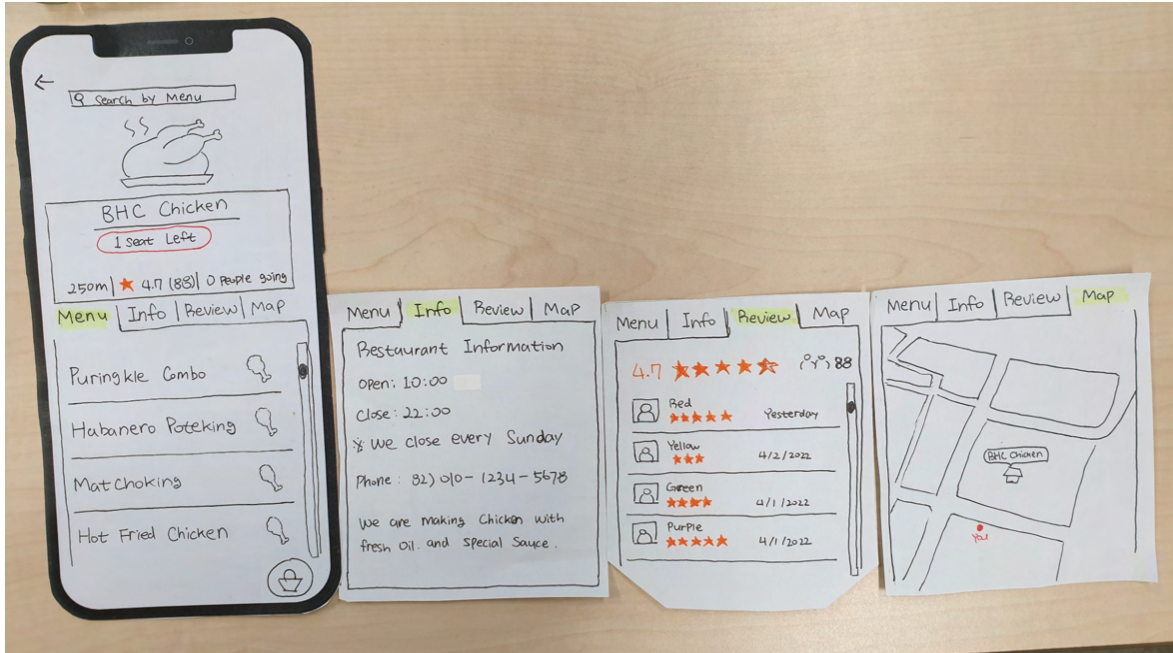 Search by Menu
BHC Chicken
1 Seat Left
250m | ★ 4.7 (88) | 0 People going
Menu | Info | Review | Map
Puringkle Combo
Habanero Poteking
Matchoking
Hot Fried Chicken
Menu | Info | Review | Map
Restaurant Information
Open: 10:00
Close: 22:00
※ We close every Sunday
Phone: 82) 010-1234-5678
We are making Chicken with
fresh Oil. and special Sauce.
Menu | Info | Review | Map
4.7 ★★★★★ 88
Red
★★★★★ Yesterday
Yellow
★★★ 4/2/2022
Green
★★★★ 4/1/2022
Purple
★★★★★ 4/1/2022
Menu | Info | Review | Map
BHC Chicken
You